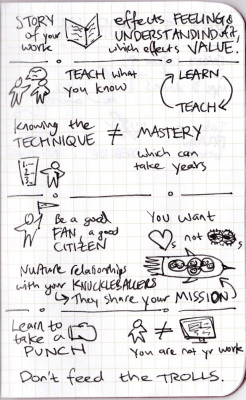 STORY of your work
effects FEELING &
UNDERSTANDING of it,
which effects VALUE.
TEACH what
you know
LEARN
TEACH
Knowing the
TECHNIQUE ≠ MASTERY
which can
take years
Be a good
FAN, a good
CITIZEN
You want
s not
Nurture relationships
with your KNUCKLEBALLERS
They share your MISSION
Learn to
take a
PUNCH
≠
You are not yr work
Don't feed the TROLLS.